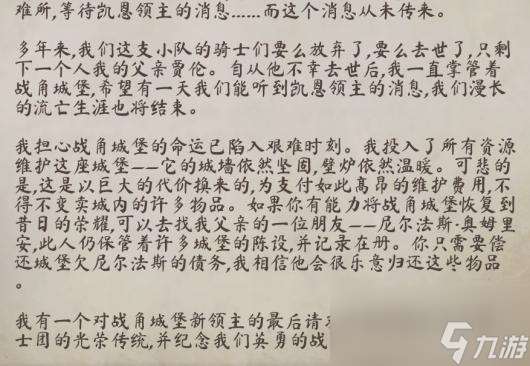 难所,等待凯恩领主的消息……而这个消息从未传来。
多年来,我们这支小队的骑士们要么放弃了,要么去世了,只剩
下一个人我的父亲贾伦。自从他不幸去世后,我一直掌管着
战角城堡,希望有一天我们能听到凯恩领主的消息,我们漫长
的流亡生涯也将结束。
我担心战角城堡的命运已陷入艰难时刻。我投入了所有资源
维护这座城堡——它的城墙依然坚固,壁炉依然温暖。可悲的
是,这是以巨大的代价换来的,为支付如此高昂的维护费用,不
得不变卖城内的许多物品。如果你有能力将战角城堡恢复到
昔日的荣耀,可以去找我父亲的一位朋友——尼尔法斯·奥姆里
安,此人仍保管着许多城堡的陈设,并记录在册。你只需要偿
还城堡欠尼尔法斯的债务,我相信他会很乐意归还这些物品
。
我有一个对战角城堡新领主的最后请
士团的光荣传统,并纪念我们英勇的战
九游